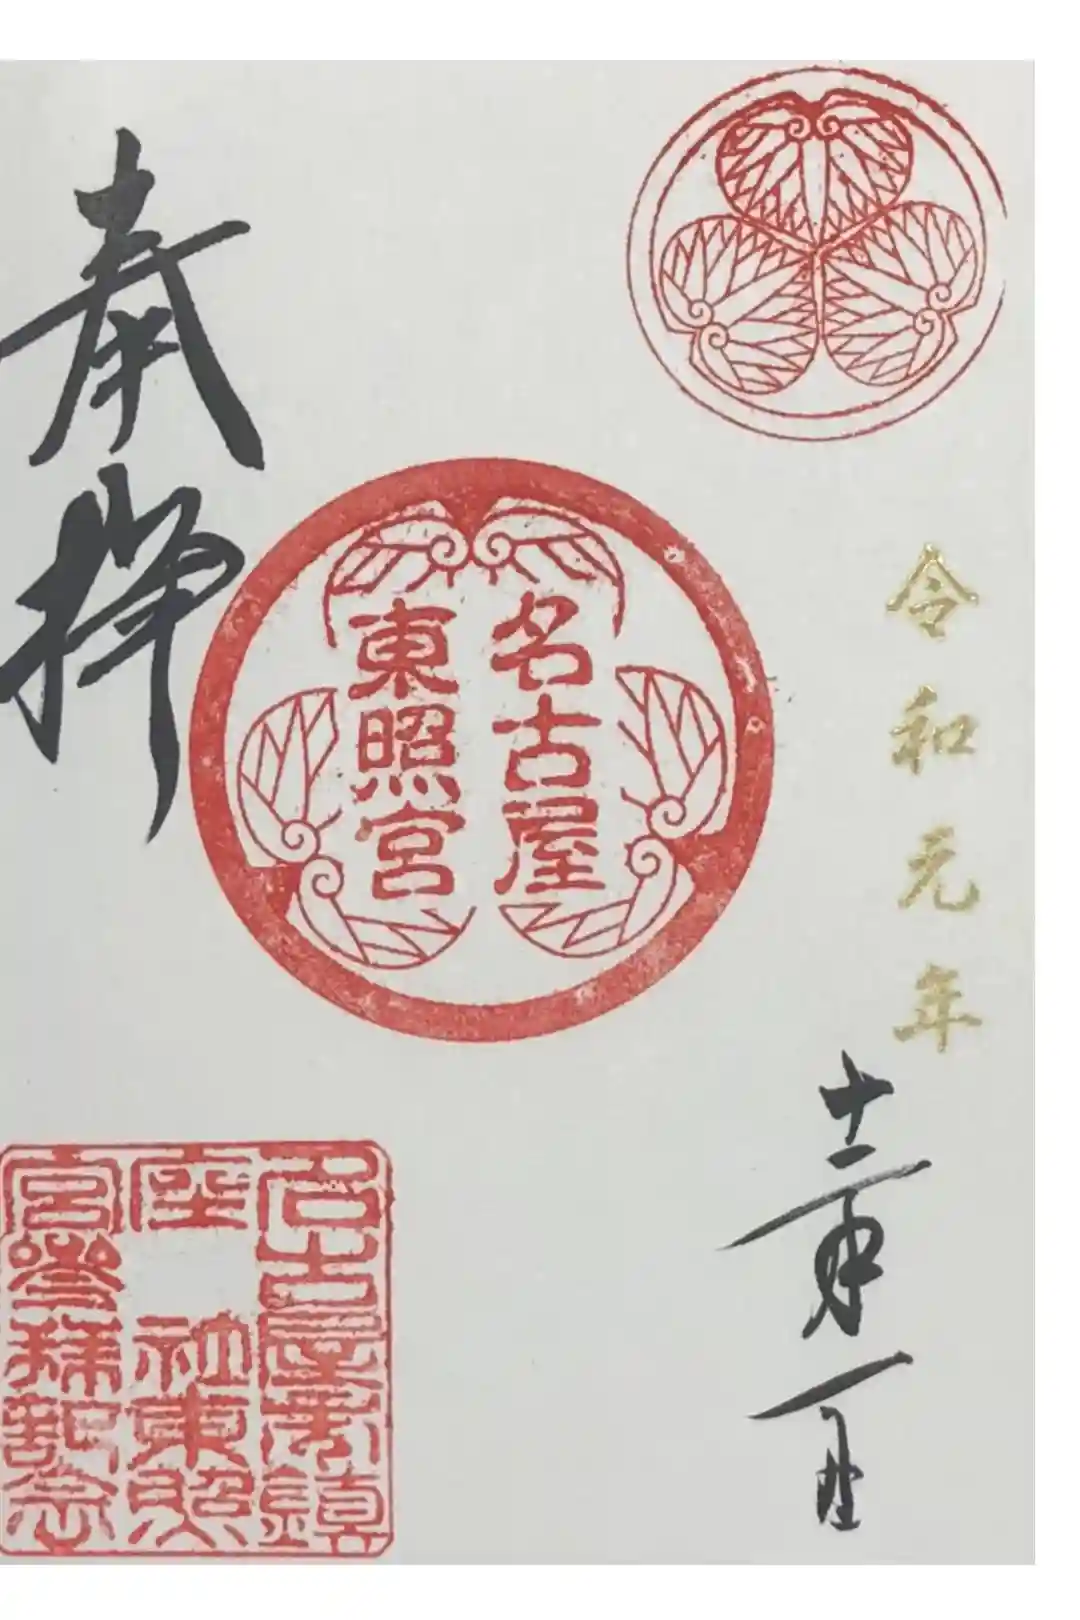 令和元年
十二月一日
名古屋
東照宮
奉拝
名古屋市鎮
座 社東照
宮參拜記念